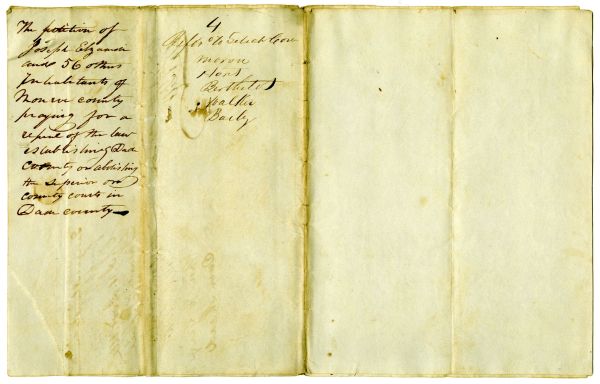 The petition of
Joseph Elzaurdi
and 56 others
Inhabitants of
Monroe county
praying for a
repeal of the law
establishing Dade
County or abolishing
the superior or
county courts in
Dade county
4
to Select Com
Walker
Baily